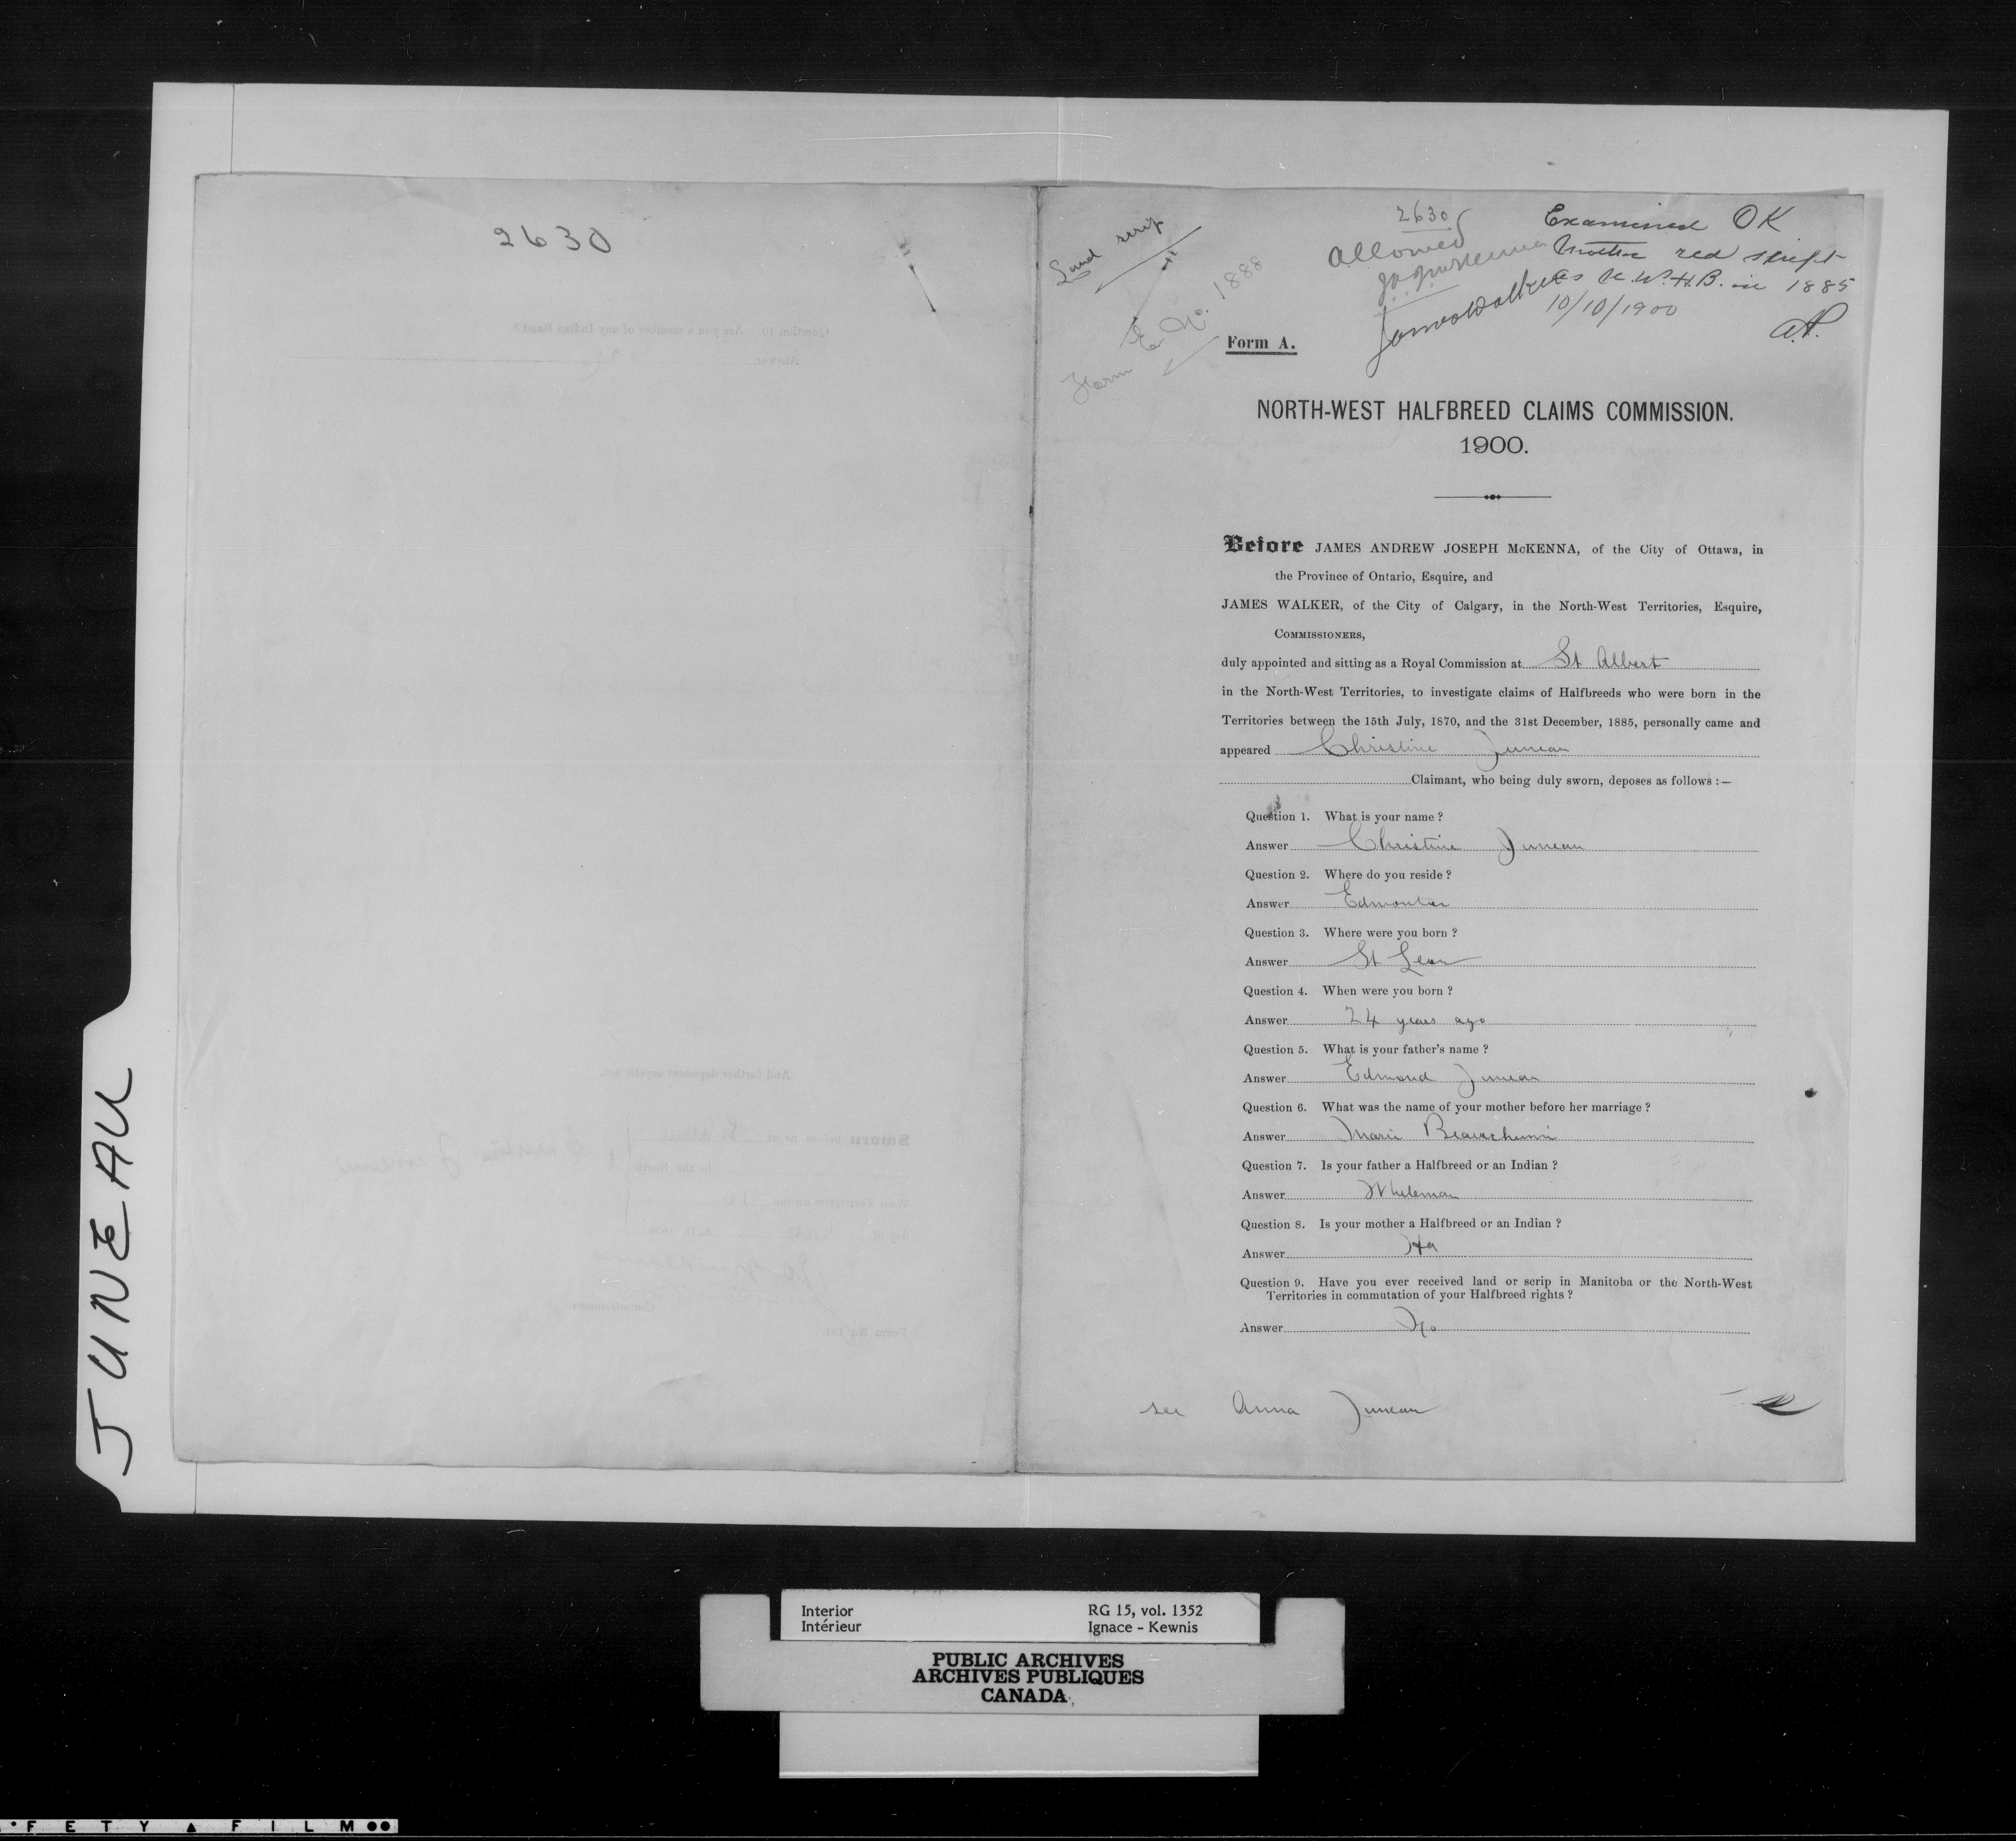 2630
JUNEAU
Land scrip
Form E. No. 1888
2630
Allowed
J.A.J. McKenna
James Walker
Examined OK
Mother red script
as N.W.H.B. in 1885
10/10/1900
Form A.
NORTH-WEST HALFBREED CLAIMS COMMISSION.
1900.
Before JAMES ANDREW JOSEPH McKENNA, of the City of Ottawa, in
the Province of Ontario, Esquire, and
JAMES WALKER, of the City of Calgary, in the North-West Territories, Esquire,
COMMISSIONERS,
duly appointed and sitting as a Royal Commission at St Albert
in the North-West Territories, to investigate claims of Halfbreeds who were born in the
Territories between the 15th July, 1870, and the 31st December, 1885, personally came and
appeared Christine Juneau
Claimant, who being duly sworn, deposes as follows :—
Question 1. What is your name ?
Answer Christine Juneau
Question 2. Where do you reside ?
Answer Edmonton
Question 3. Where were you born ?
Answer St Leon
Question 4. When were you born ?
Answer 24 years ago
Question 5. What is your father's name ?
Answer Edmond Juneau
Question 6. What was the name of your mother before her marriage ?
Answer Marie Beauchemin
Question 7. Is your father a Halfbreed or an Indian ?
Answer Whiteman
Question 8. Is your mother a Halfbreed or an Indian ?
Answer
Question 9. Have you ever received land or scrip in Manitoba or the North-West
Territories in commutation of your Halfbreed rights ?
Answer No
see Anna Juneau
Interior
Intérieur
RG 15, vol. 1352
Ignace - Kewnis
PUBLIC ARCHIVES
ARCHIVES PUBLIQUES
CANADA
FETY FILM